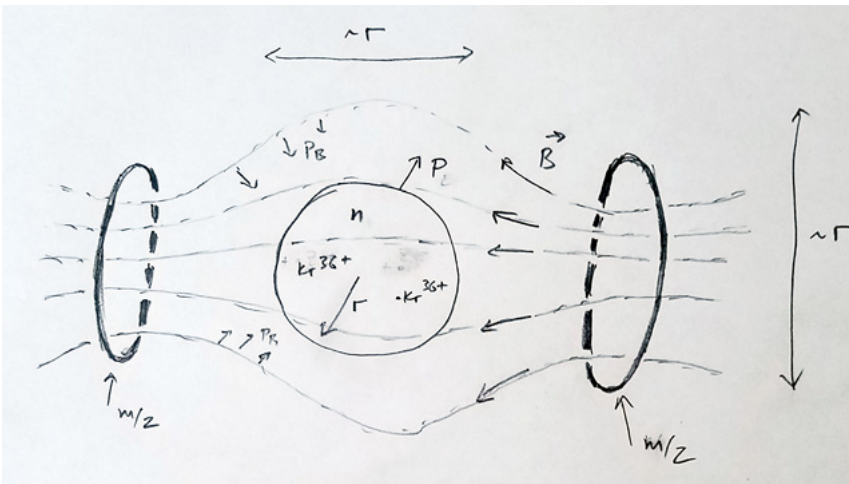 ~r
P_B
P
B⃗
n
Kr³⁶⁺
.Kr³⁶⁺
r
~r
P_B
m/2
m/2